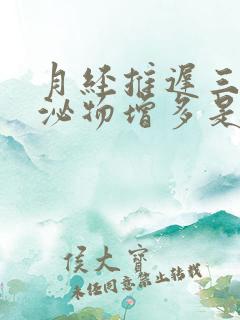 月经推迟三
泌物增多是
侯大宝
未经同意禁止转载